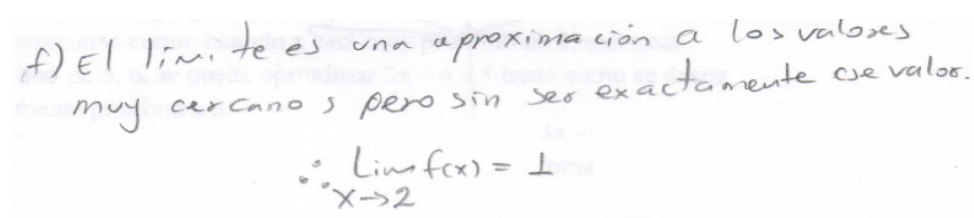 f) El limite es una aproximación a los valores
muy cercanos pero sin ser exactamente ese valor.
∴ Lim f(x) = 1
x→2